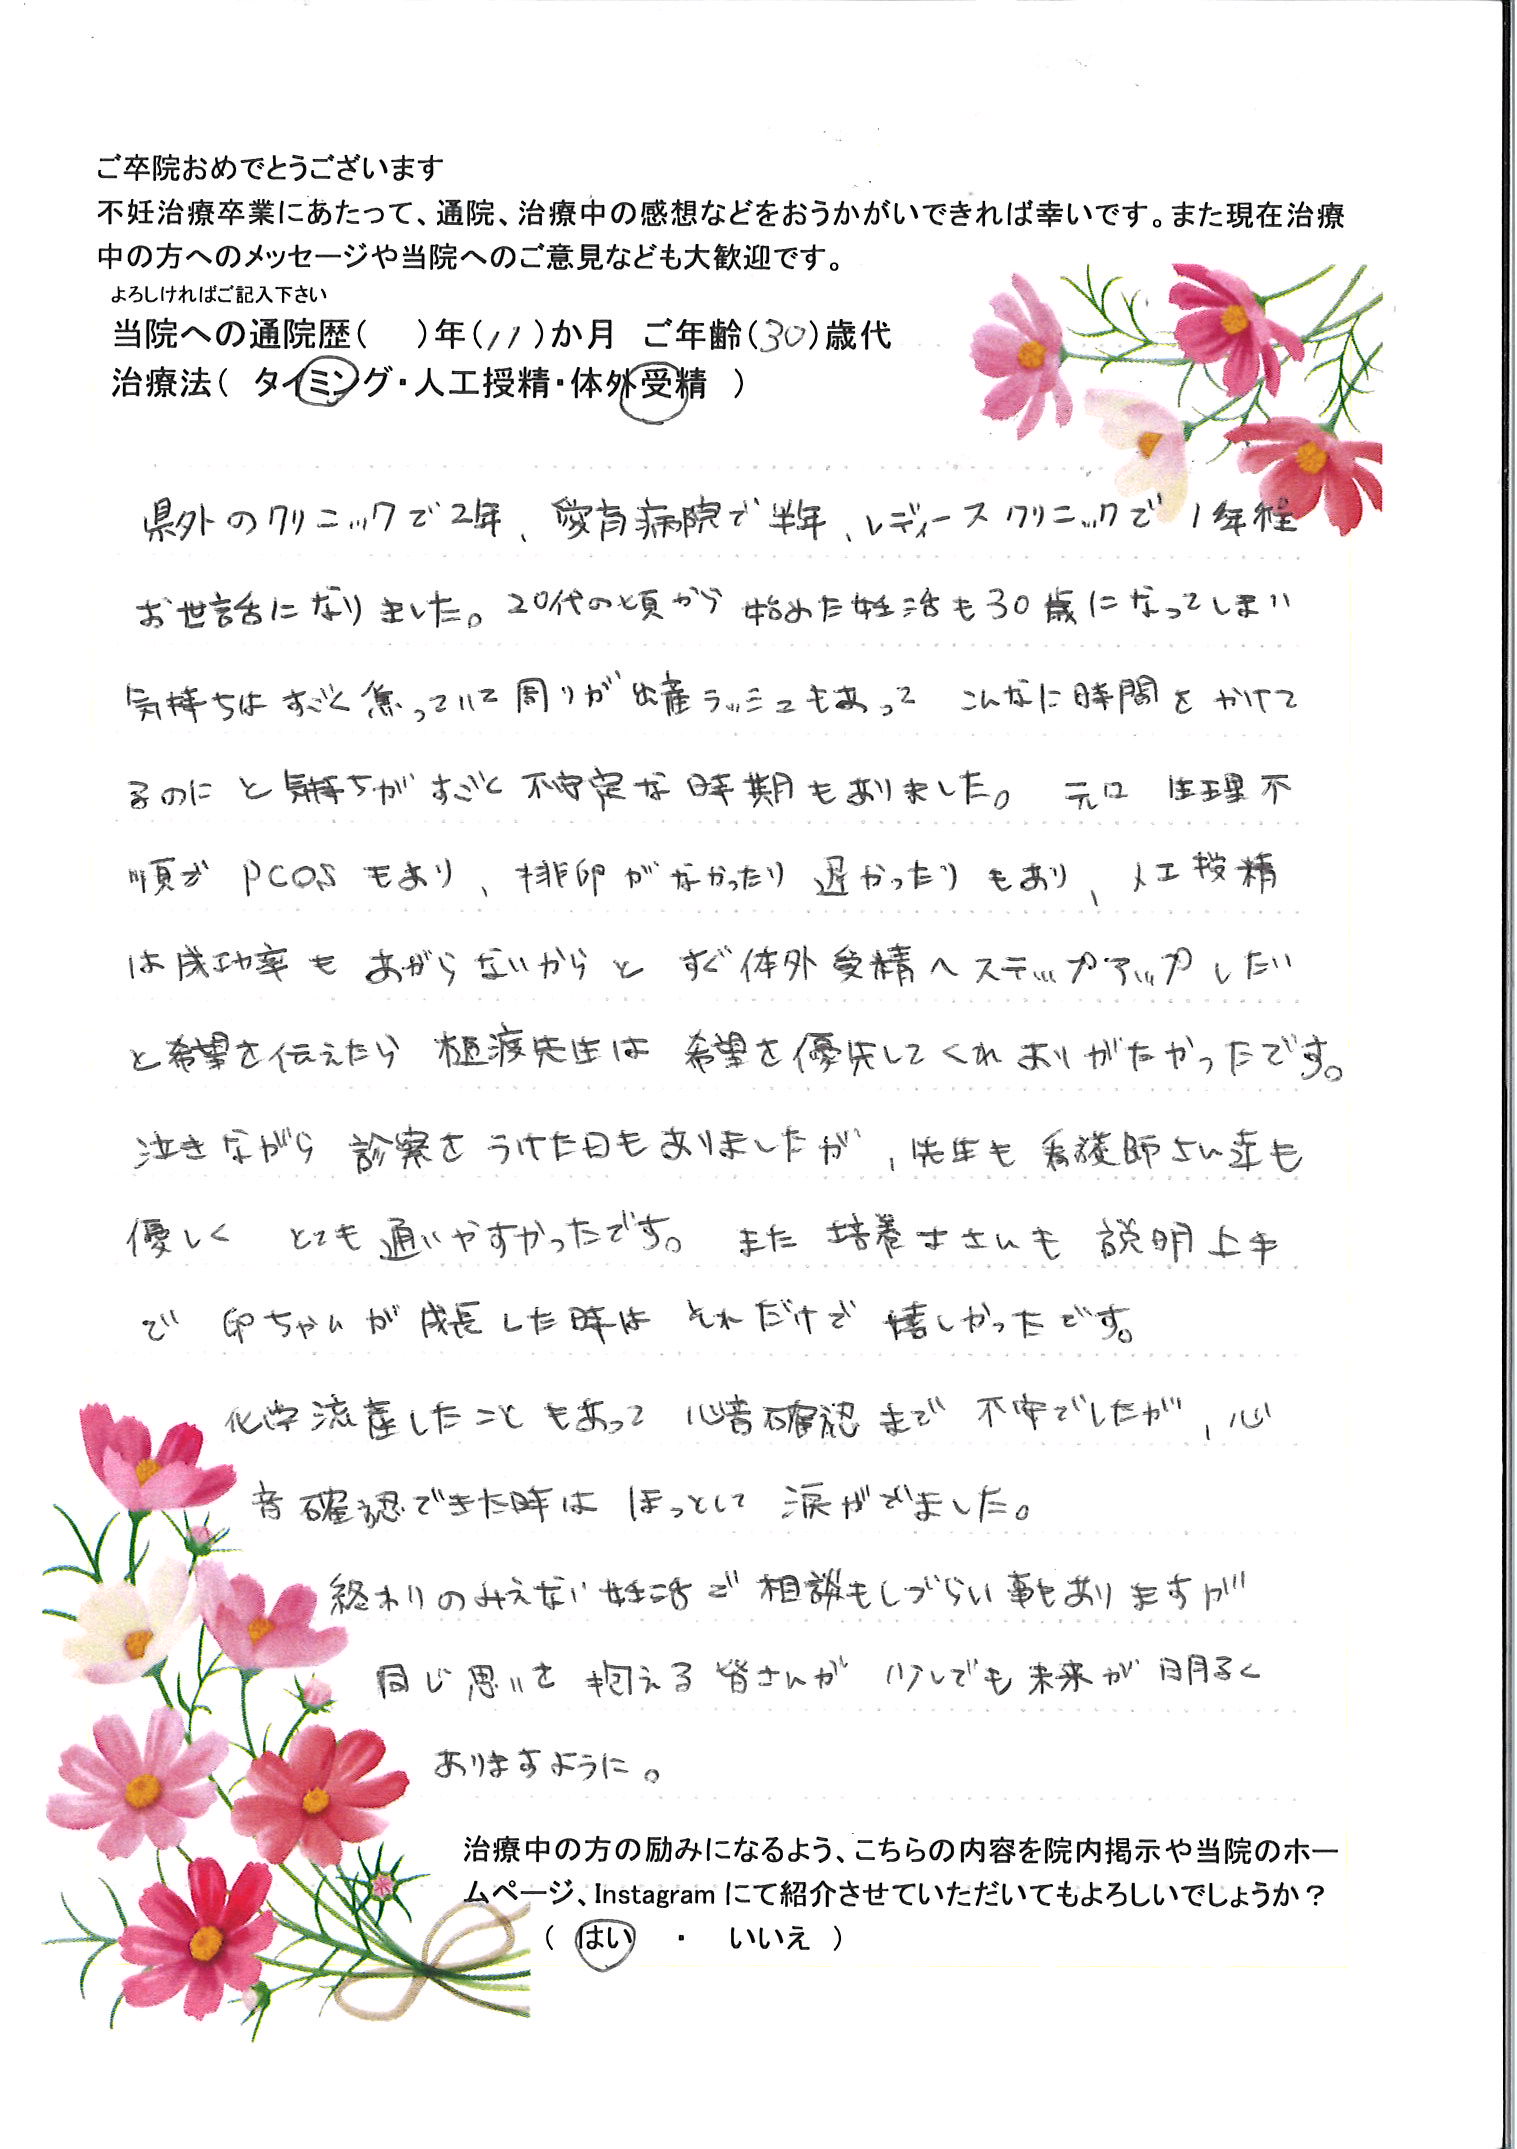 ご卒院おめでとうございます
不妊治療卒業にあたって、通院、治療中の感想などをおうかがいできれば幸いです。また現在治療
中の方へのメッセージや当院へのご意見なども大歓迎です。
よろしければご記入下さい
当院への通院歴(　)年(11)か月　ご年齢(30)歳代
治療法(　タイミング・人工授精・体外受精　)
県外のクリニックで2年、愛育病院で半年、レディースクリニックで1年程
お世話になりました。20代の頃から始めた妊活も30歳になってしまい
気持ちはすごく焦っていて周りが出産ラッシュもあって こんなに時間をかけて
るのにと気持ちがすごく不安定な時期もありました。元々生理不
順で PCOSもあり、排卵がなかったり遅かったりもあり、人工授精
は成功率もあがらないからと すぐ体外受精へステップアップしたい
と希望を伝えたら 樋渡先生は 希望を優先してくれありがたかったです。
泣きながら 診察をうけた日もありましたが、先生も看護師さん達も
優しく とても通いやすかったです。また 培養士さんも 説明上手
で 卵ちゃんが成長した時は それだけで 嬉しかったです。
化学流産したこともあって 心音確認まで 不安でしたが、心
音確認できた時は ほっとして 涙がでました。
終わりのみえない妊活で相談もしづらい事もありますが
同じ思いを 抱える皆さんが 少しでも未来が明るく
ありますように。
治療中の方の励みになるよう、こちらの内容を院内掲示や当院のホー
ムページ、Instagram にて紹介させていただいてもよろしいでしょうか？
(　はい　・　いいえ　)